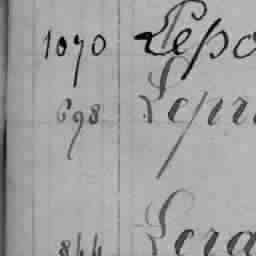 1070 Lepo
698 Lepr
844 Lera